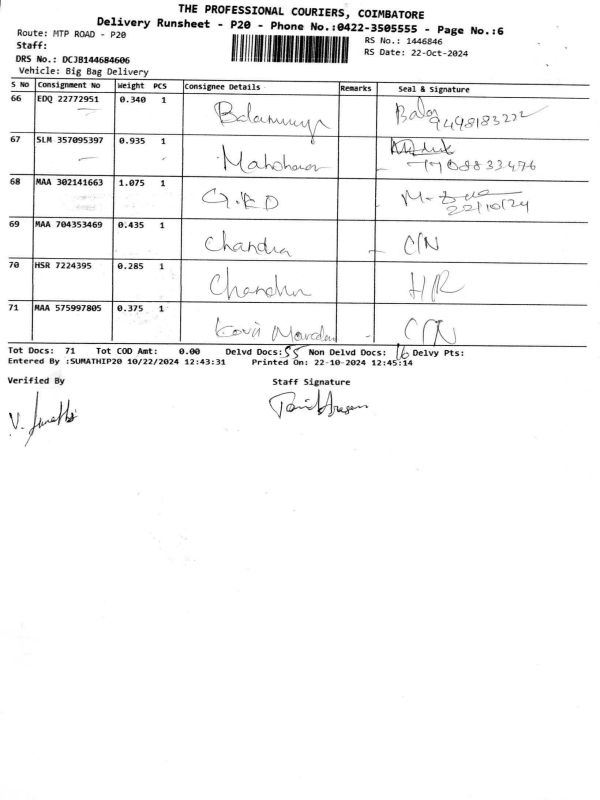 THE PROFESSIONAL COURIERS, COIMBATORE
Delivery Runsheet - P20 - Phone No.:0422-3505555 - Page No.:6
Route: MTP ROAD - P20 RS No.: 1446846
Staff: RS Date: 22-Oct-2024
DRS No.: DCJB144684606
Vehicle: Big Bag Delivery
S No Consignment No Weight PCS Consignee Details Remarks Seal & Signature
66 EDQ 22772951 0.340 1
9448183222
67 SLM 357095397 0.935 1
68 MAA 302141663 1.075 1 G.R.D
22/10/24
69 MAA 704353469 0.435 1 Chandra C/N
70 HSR 7224395 0.285 1 H/R
71 MAA 575997805 0.375 1 C/N
Tot Docs: 71 Tot COD Amt: 0.00 Delvd Docs: 55 Non Delvd Docs: 16 Delvy Pts:
Entered By :SUMATHIP20 10/22/2024 12:43:31 Printed On: 22-10-2024 12:45:14
Verified By Staff Signature